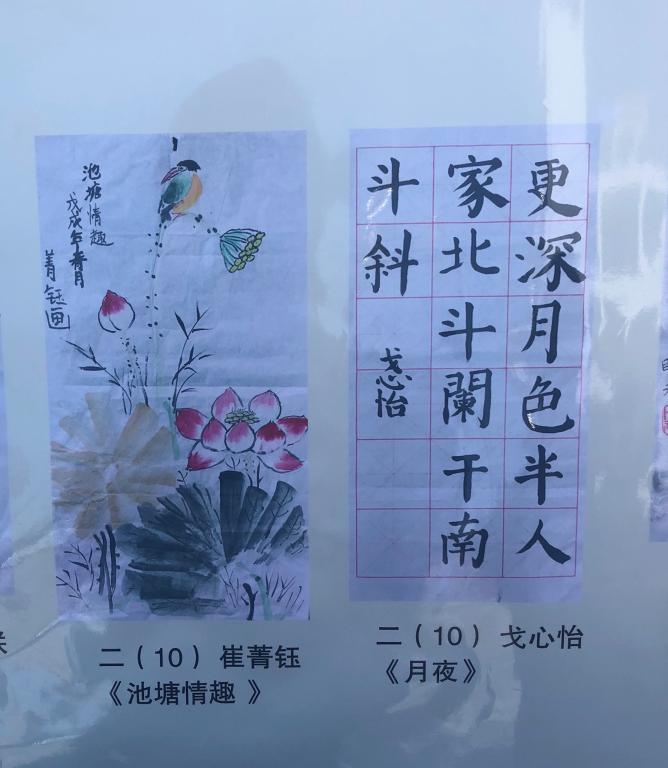 池塘情趣
戊戌年
菁钰画
更深月色半人
家北斗闌干南
斗斜
戈心怡
二（10）崔菁钰
《池塘情趣 》
二（10） 戈心怡
《月夜》